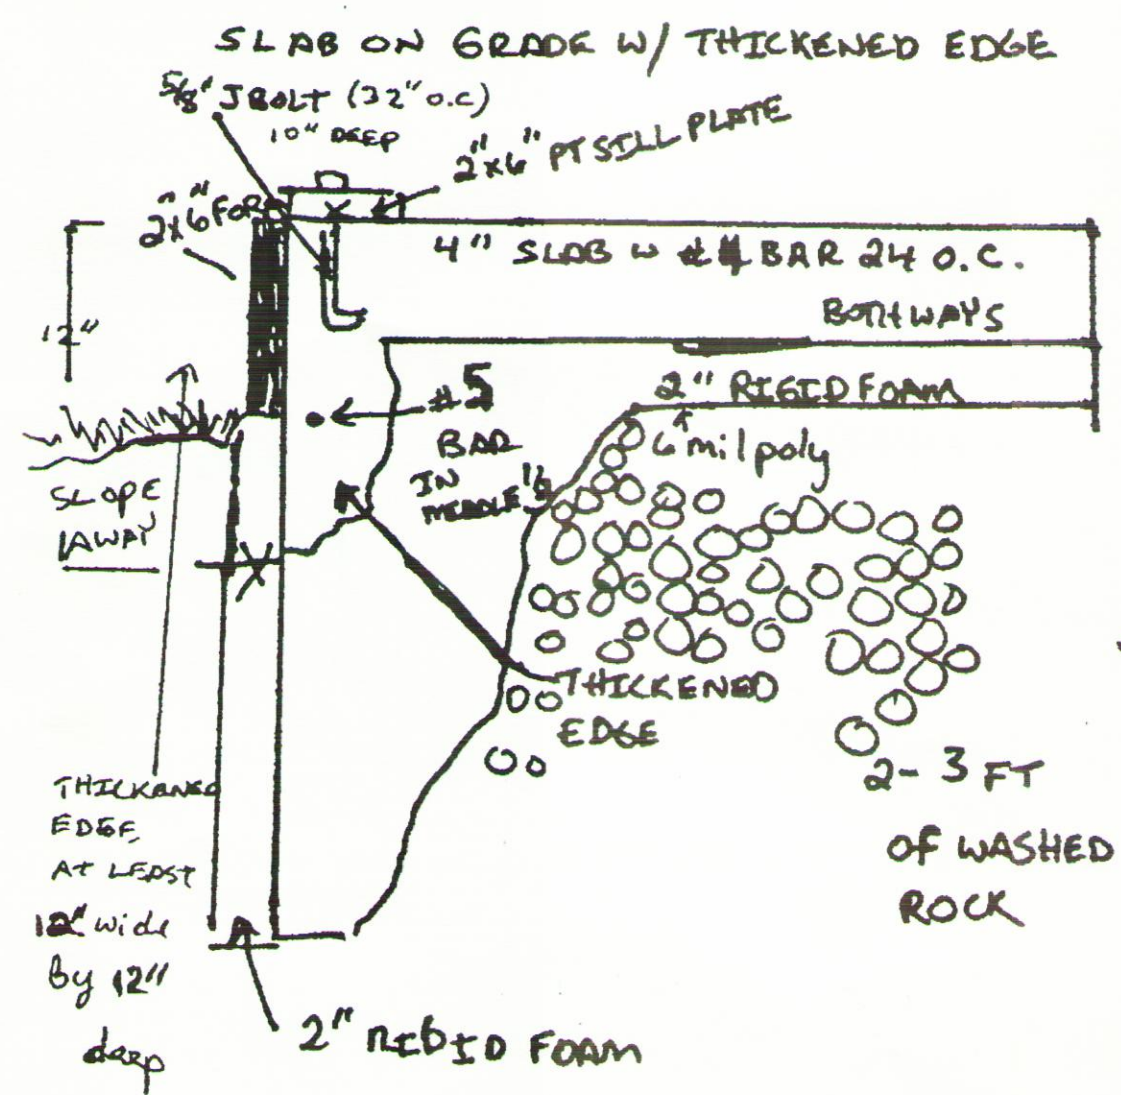 SLAB ON GRADE W/ THICKENED EDGE
5/8" J BOLT (32" O.C)
10" DEEP
2"x6" PT SILL PLATE
2"x6" FORM
4" SLAB W #4 BAR 24 O.C.
BOTH WAYS
12"
2" RIGID FOAM
6 mil poly
#5
BAR
IN
MIDDLE
SLOPE
AWAY
THICKENED
EDGE
2-3 FT
OF WASHED
ROCK
THICKENED
EDGE,
AT LEAST
12" wide
by 12"
deep
2" RIGID FOAM